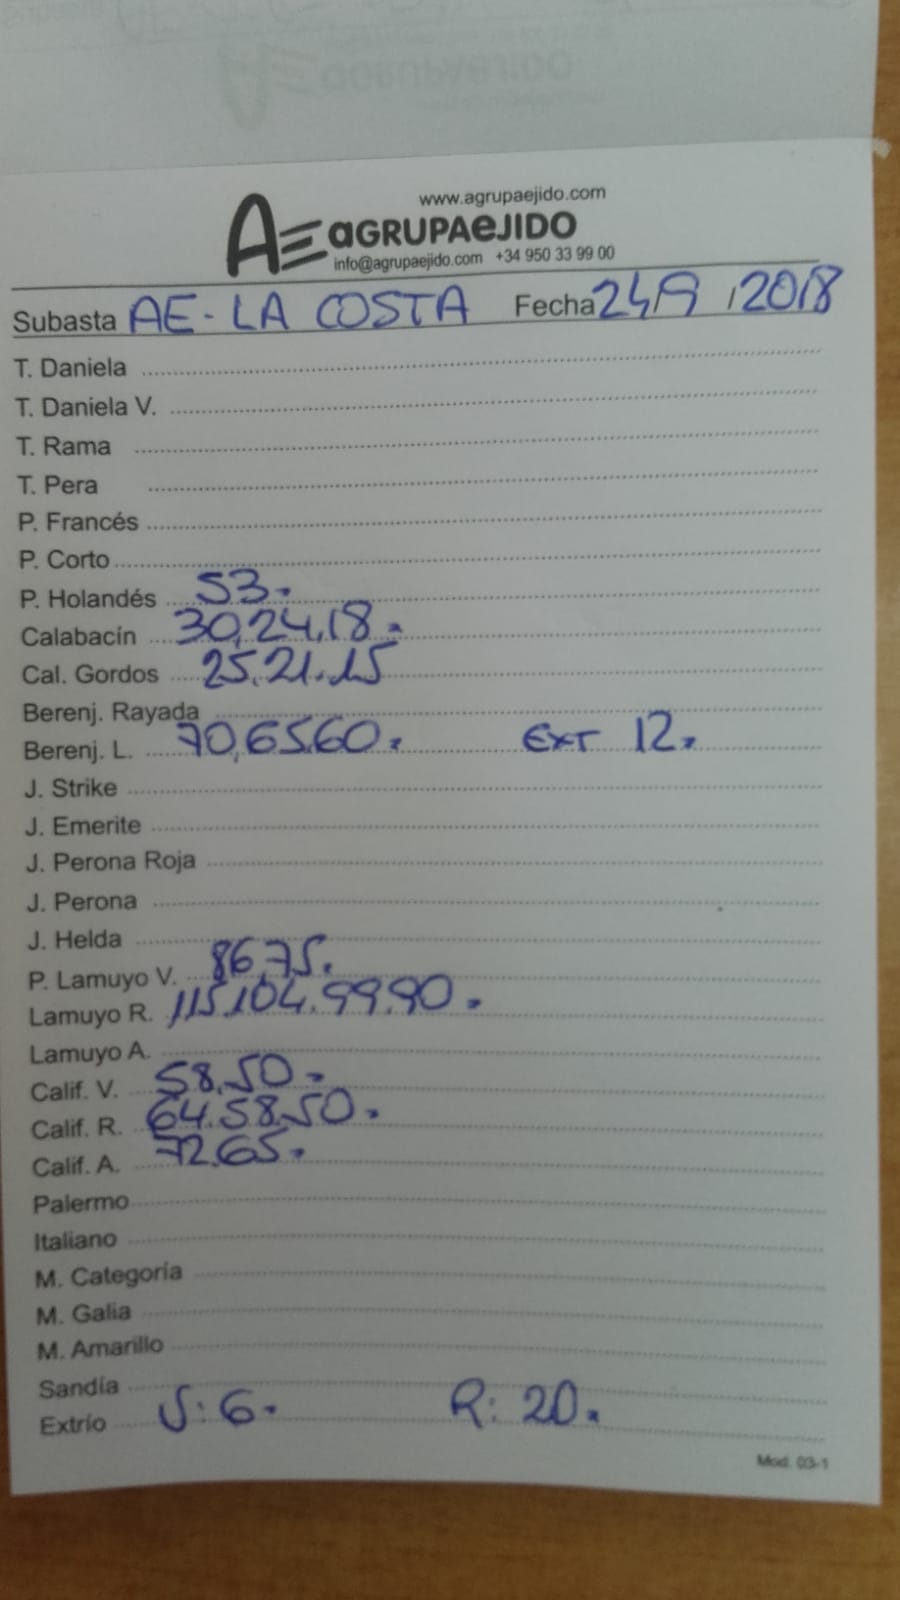 www.agrupaejido.com
AE aGRUPAeJIDO
info@agrupaejido.com +34 950 33 99 00
Subasta AE - LA COSTA Fecha 24/9 / 2018
T. Daniela
T. Daniela V.
T. Rama
T. Pera
P. Francés
P. Corto
P. Holandés 53.
Calabacín 30,24,18.
Cal. Gordos 25.21.15
Berenj. Rayada
Berenj. L. 70,65.60. EXT 12.
J. Strike
J. Emerite
J. Perona Roja
J. Perona
J. Helda
P. Lamuyo V. 86,75.
Lamuyo R. 115.104.99.90.
Lamuyo A.
Calif. V. 58.50.
Calif. R. 64.58.50.
Calif. A. 72.65.
Palermo
Italiano
M. Categoría
M. Galia
M. Amarillo
Sandía
Extrío V: 6. R: 20.
Mod. 03-1